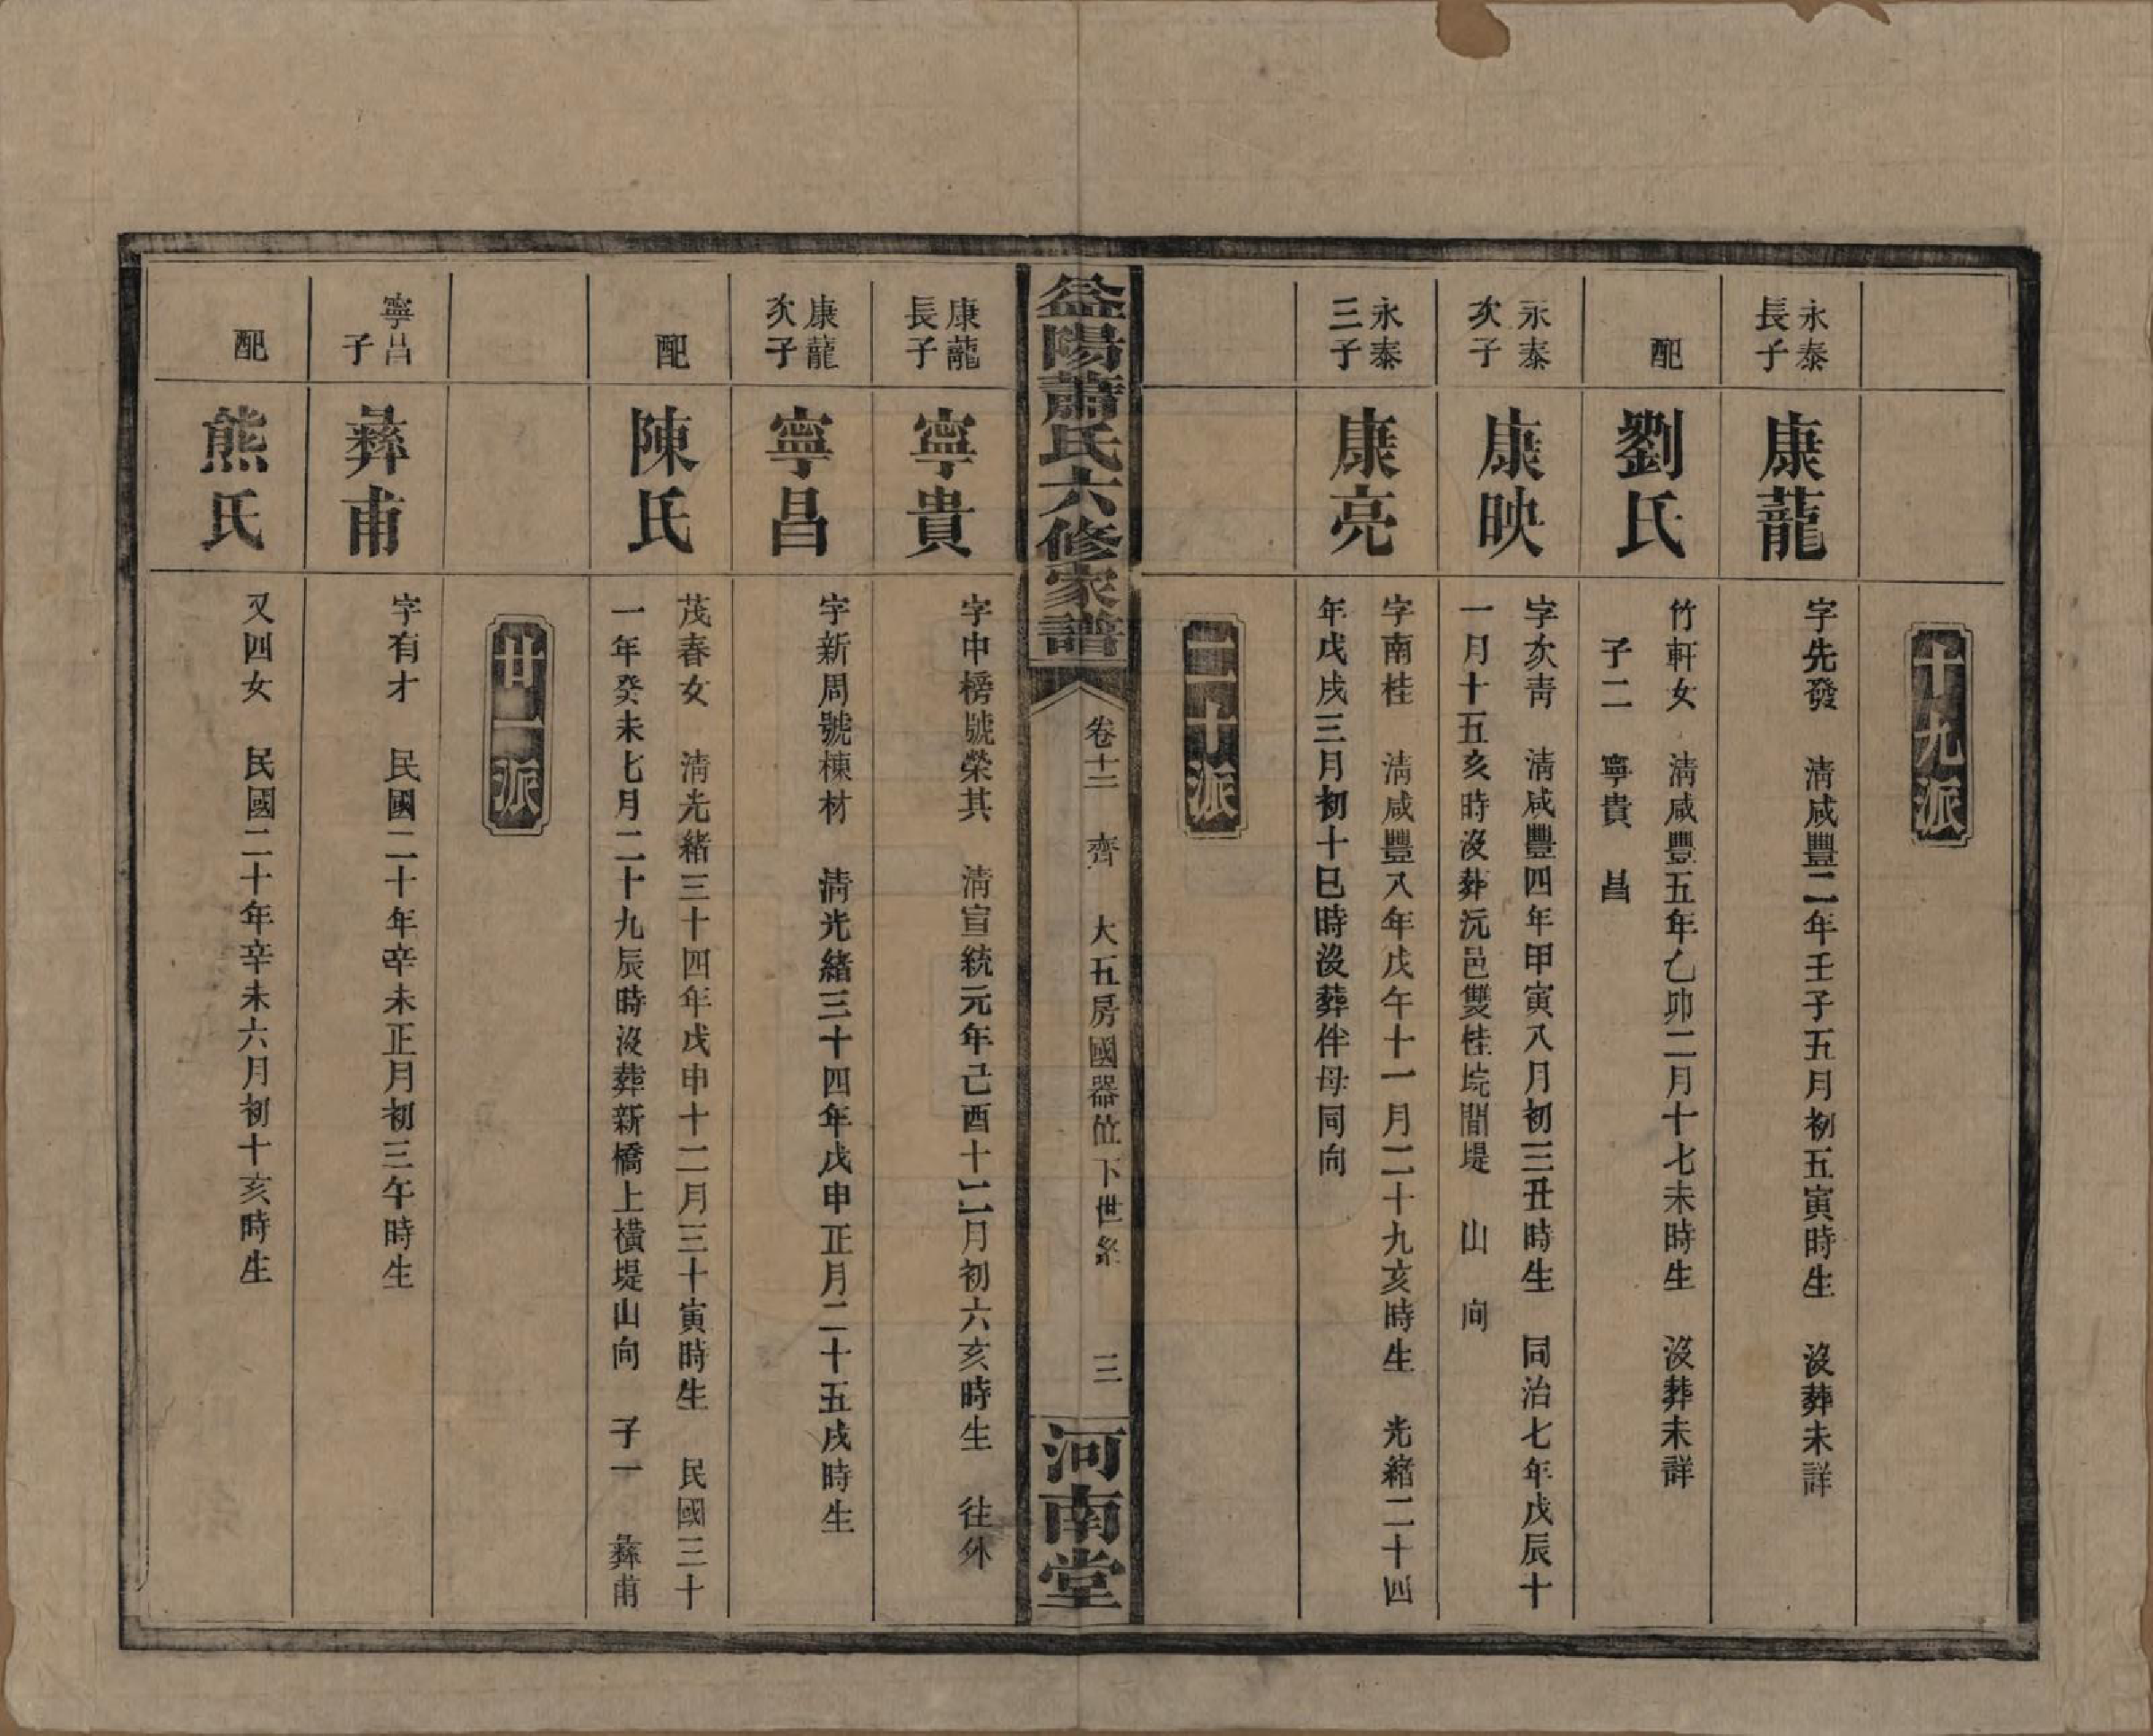 十九派
永泰
長子
康蘢
字先發　清咸豐二年壬子五月初五寅時生　沒葬未詳
配
劉氏
竹軒女　清咸豐五年乙卯二月十七未時生　沒葬未詳
子二　寧貴　昌
永泰
次子
康映
字次靑　清咸豐四年甲寅八月初三丑時生　同治七年戊辰十
一月十五亥時沒葬沅邑雙桂垸間堤　山　向
永泰
三子
康亮
字南桂　清咸豐八年戊午十一月二十九亥時生　光緒二十四
年戊戌三月初十巳時沒葬伴母同向
二十派
益陽蕭氏六修家譜
卷十二　齊　大五房國器位下世系　三
河南堂
康蘢
長子
寧貴
字中榜號榮其　清宣統元年己酉十二月初六亥時生　往外
康蘢
次子
寧昌
字新周號棟材　清光緒三十四年戊申正月二十五戌時生
配
陳氏
茂春女　清光緒三十四年戊申十二月三十寅時生　民國三十
一年癸未七月二十九辰時沒葬新橋上橫堤山向　子一　彝甫
廿一派
寧昌
子
彝甫
字有才　民國二十年辛未正月初三午時生
配
熊氏
又四女　民國二十年辛未六月初十亥時生